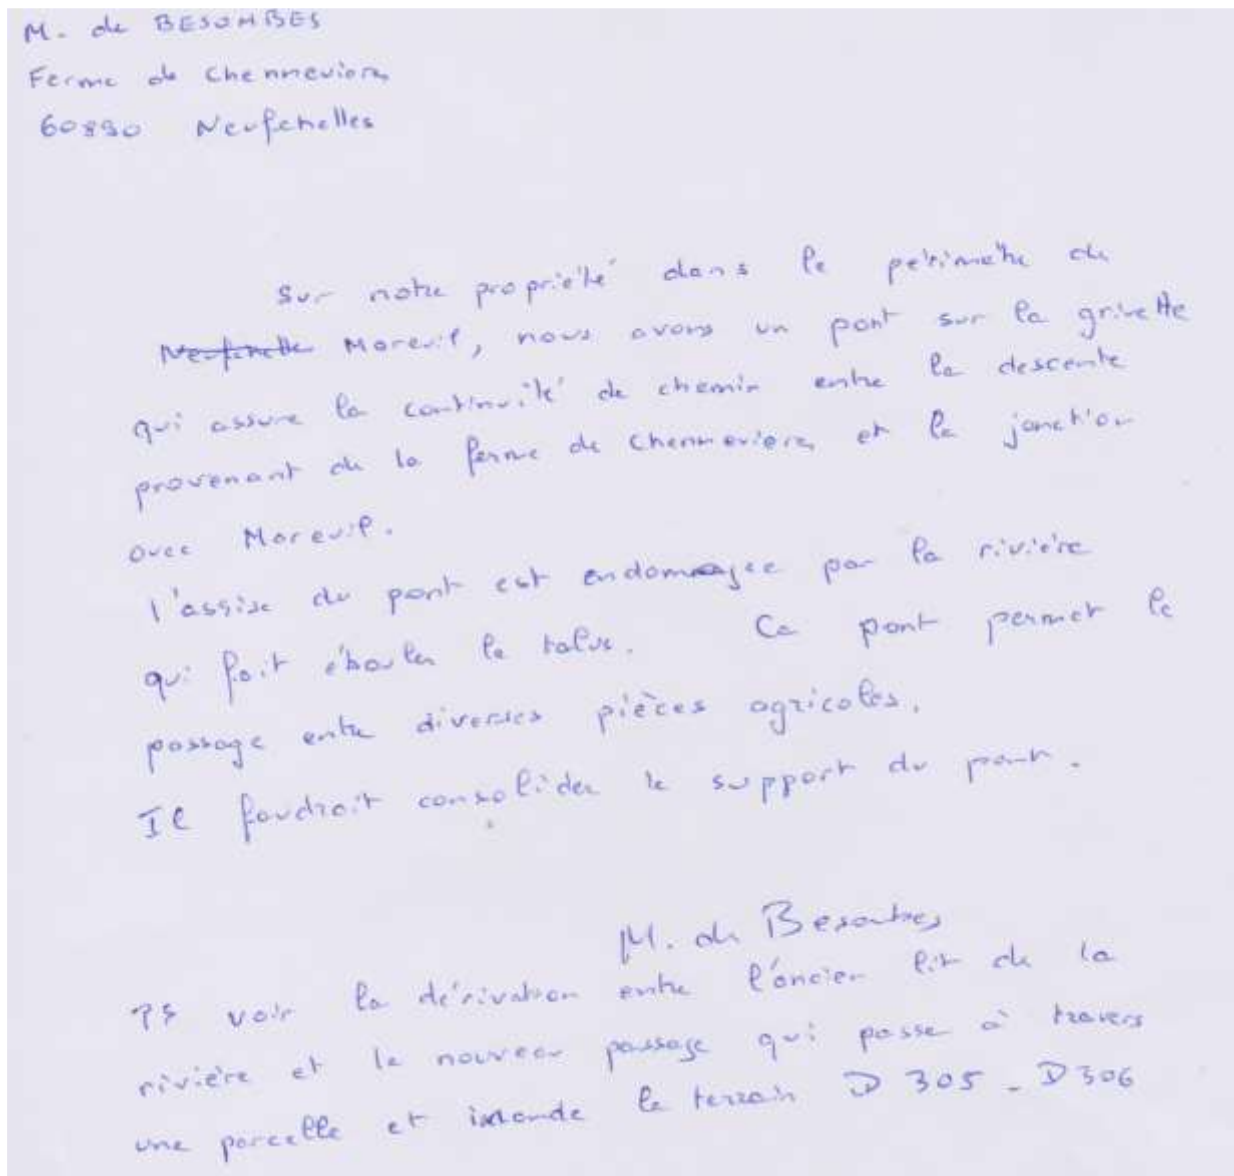 M. de BESOMBES
Ferme de Chennevieres
60890 Neufchelles
Sur notre propriété dans le périmètre de
Neufchelle Mareuil, nous avons un pont sur la grivette
qui assure la continuité de chemin entre la descente
provenant de la ferme de Chennevieres et la jonction
avec Mareuil.
l'assise du pont est endomagee par la rivière
qui fait ébouler le talus. Ce pont permet le
passage entre diverses pièces agricoles.
Il faudrait consolider le support du pont.
M. de Besombes
PS voir la dérivation entre l'ancien lit de la
rivière et le nouveau passage qui passe à travers
une parcelle et inonde le terrain D 305 - D 306